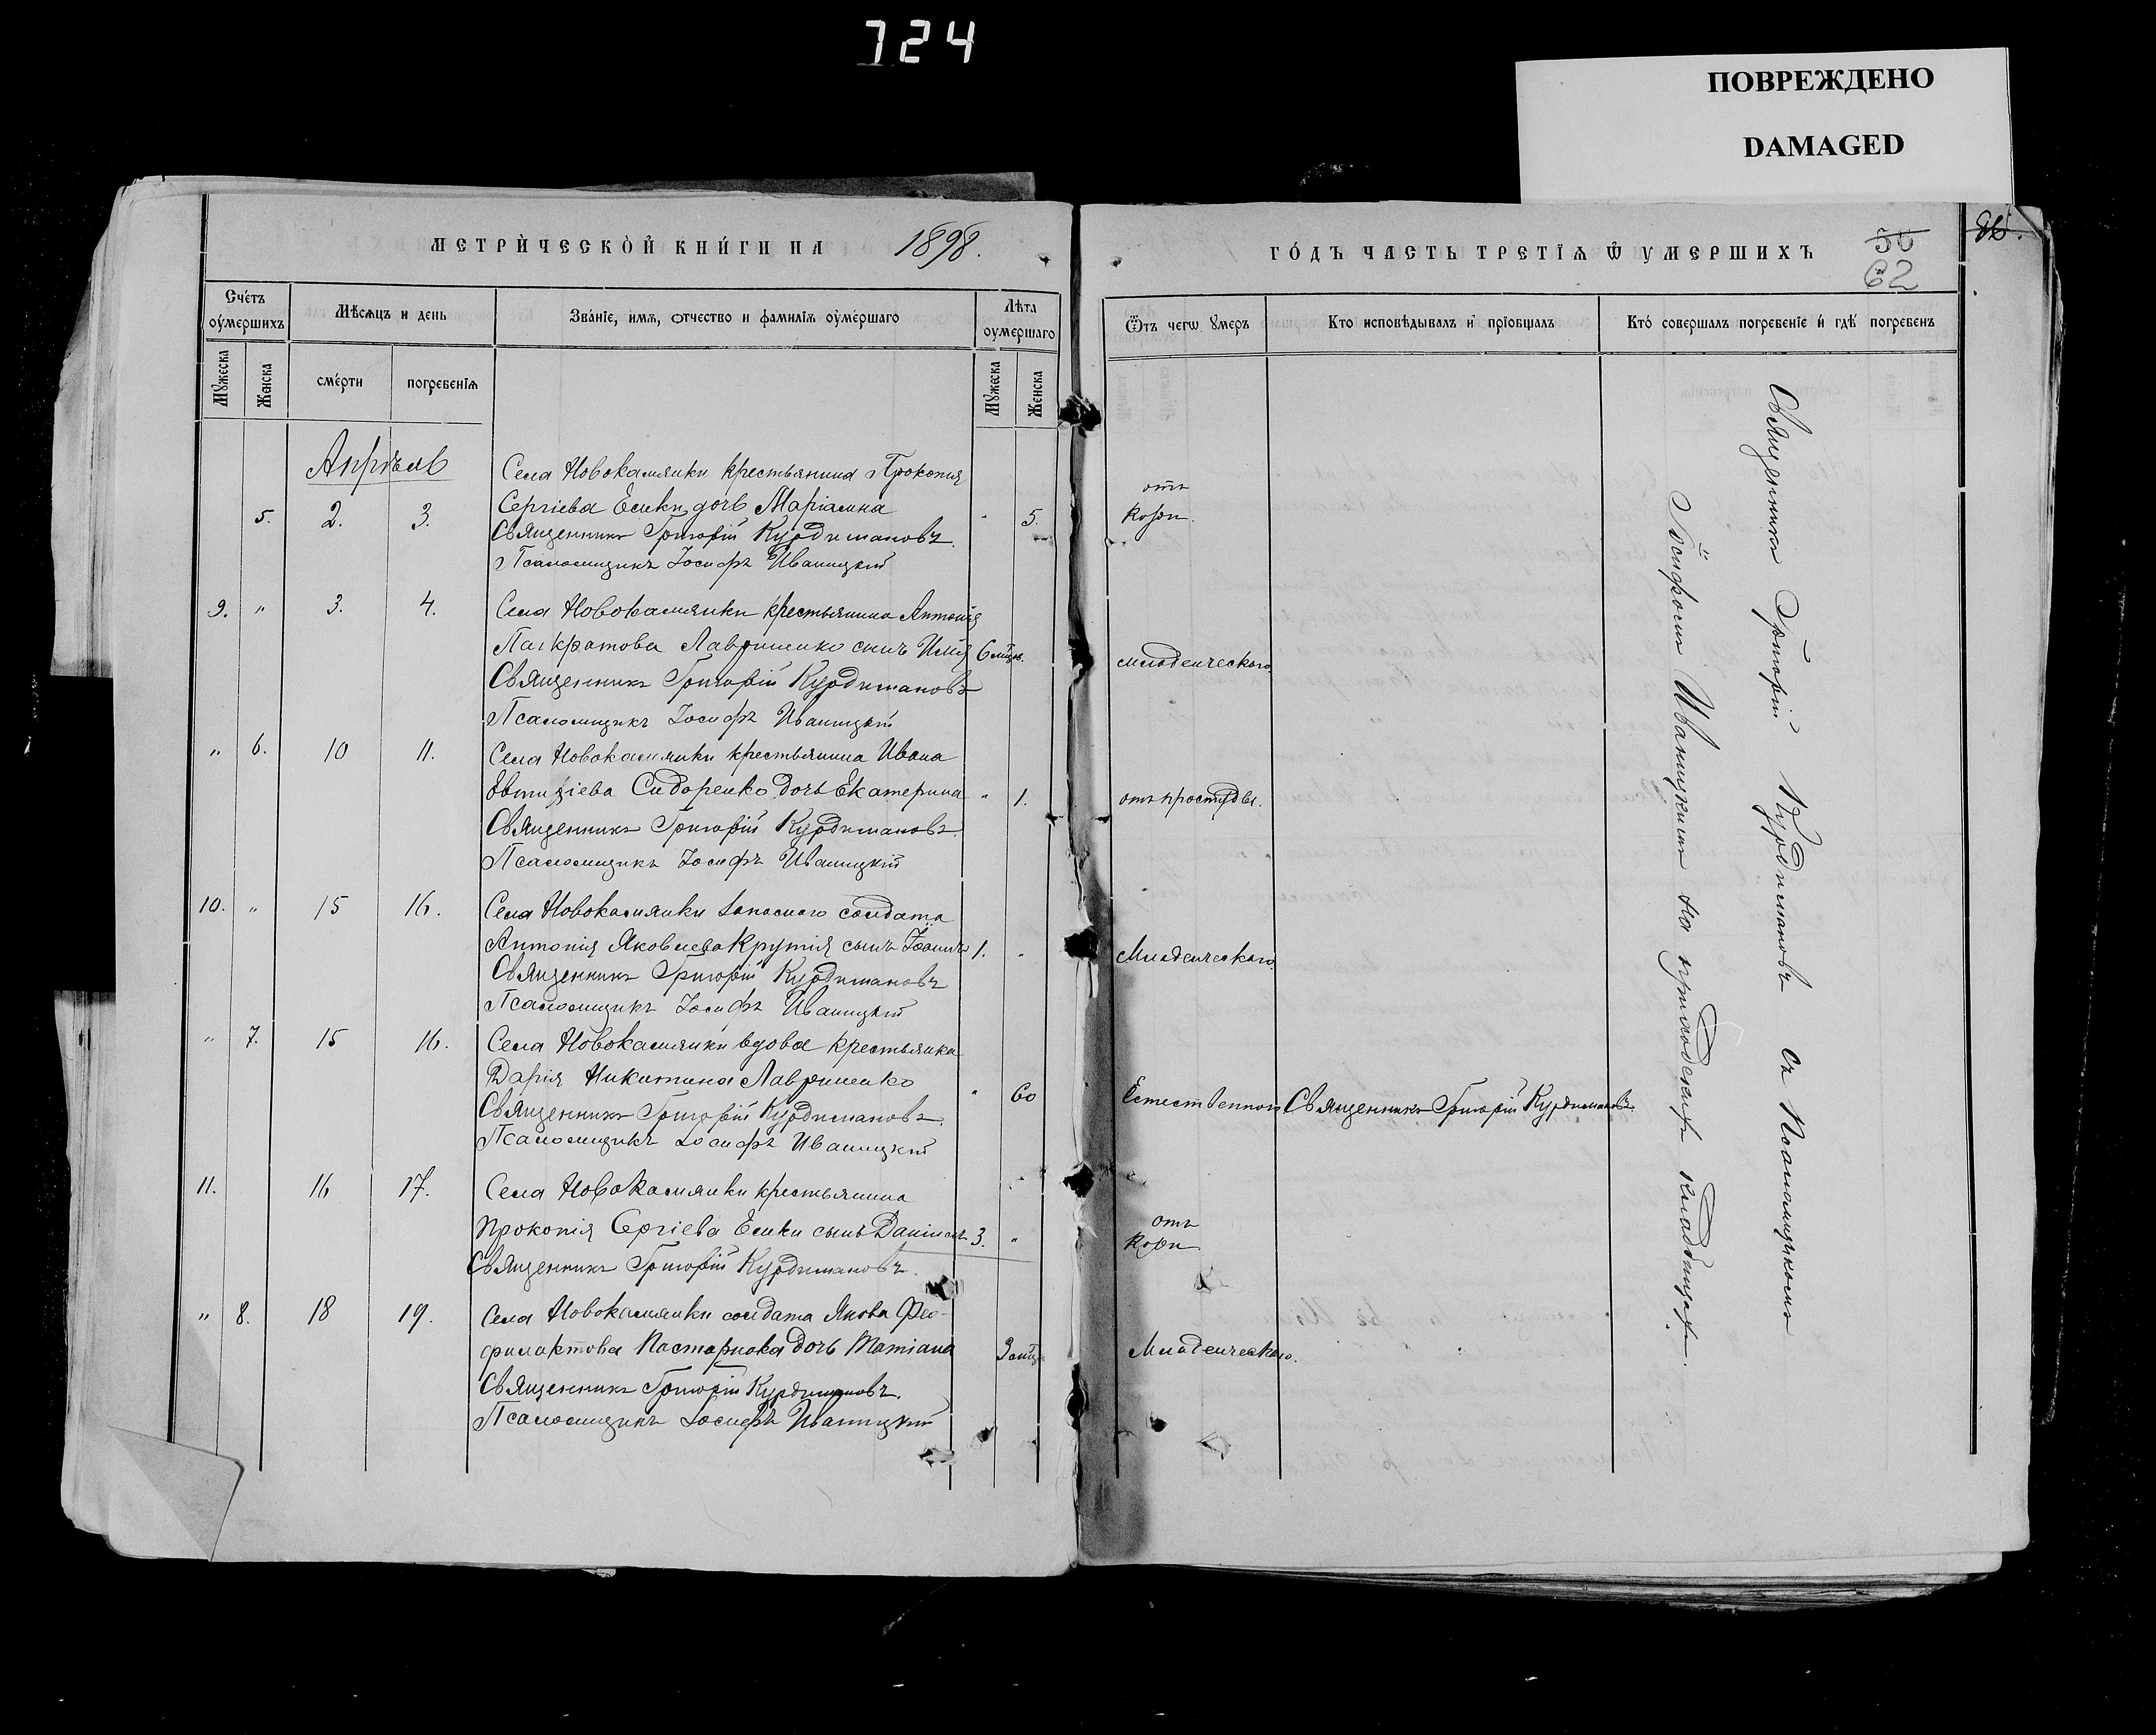 724
ПОВРЕЖДЕНО
DAMAGED
МЕТРИЧЕСКОЙ КНИГИ НА 1898.
Счетъ оумершихъ
Мѣсяцъ и день
Званіе, имя, отчество и фамилія оумершаго
Лѣта оумершаго
Мужеска
Женска
смерти
погребенія
Мужеска
Женска
Апрѣль
Села Новокамянки крестьянина Прокопія
5. 2. 3. Сергіева Голики дочь Маріамна " 5.
Священникъ Григорій Курдимановъ
Псаломщикъ Іосифъ Иваницкій
9. " 3. 4. Села Новокамянки крестьянина Антонія
Панкратова Лавриненко сынъ Илія 6 мѣс.
Священникъ Григорій Курдимановъ
Псаломщикъ Іосифъ Иваницкій
" 6. 10 11. Села Новокамянки крестьянина Ивана
Сидоренко дочь Екатерина " 1.
Священникъ Григорій Курдимановъ
Псаломщикъ Іосифъ Иваницкій
10. " 15 16. Села Новокамянки запаснаго солдата
Антонія Яковлева Крутія сынъ Іоаннъ 1. "
Священникъ Григорій Курдимановъ
Псаломщикъ Іосифъ Иваницкій
" 7. 15 16. Села Новокамянки вдова крестьянка
Дарія Никитина Лавриненко " 60
Священникъ Григорій Курдимановъ
Псаломщикъ Іосифъ Иваницкій
11. 16 17. Села Новокамянки крестьянина
Прокопія Сергіева сынъ Даніилъ 3. "
Священникъ Григорій Курдимановъ
" 8. 18 19. Села Новокамянки солдата Якова Фео-
филактова Пастернака дочь Татіана 3 мѣс.
Священникъ Григорій Курдимановъ.
Псаломщикъ Іосифъ Иваницкій
ГОДЪ ЧАСТЬ ТРЕТІЯ Ѿ УМЕРШИХЪ
56
62
Ѿтъ чегѡ умеръ
Кто исповѣдывалъ и пріобщалъ
Кто совершалъ погребеніе и гдѣ погребенъ
отъ
кори.
младенческаго
отъ простуды.
Младенческаго.
Естественной Священникъ Григорій Курдимановъ.
отъ
кори
Младенческаго.
Священникъ Григорій Курдимановъ съ Псаломщикомъ
Іосифомъ Иваницкимъ на приходскомъ кладбищѣ.